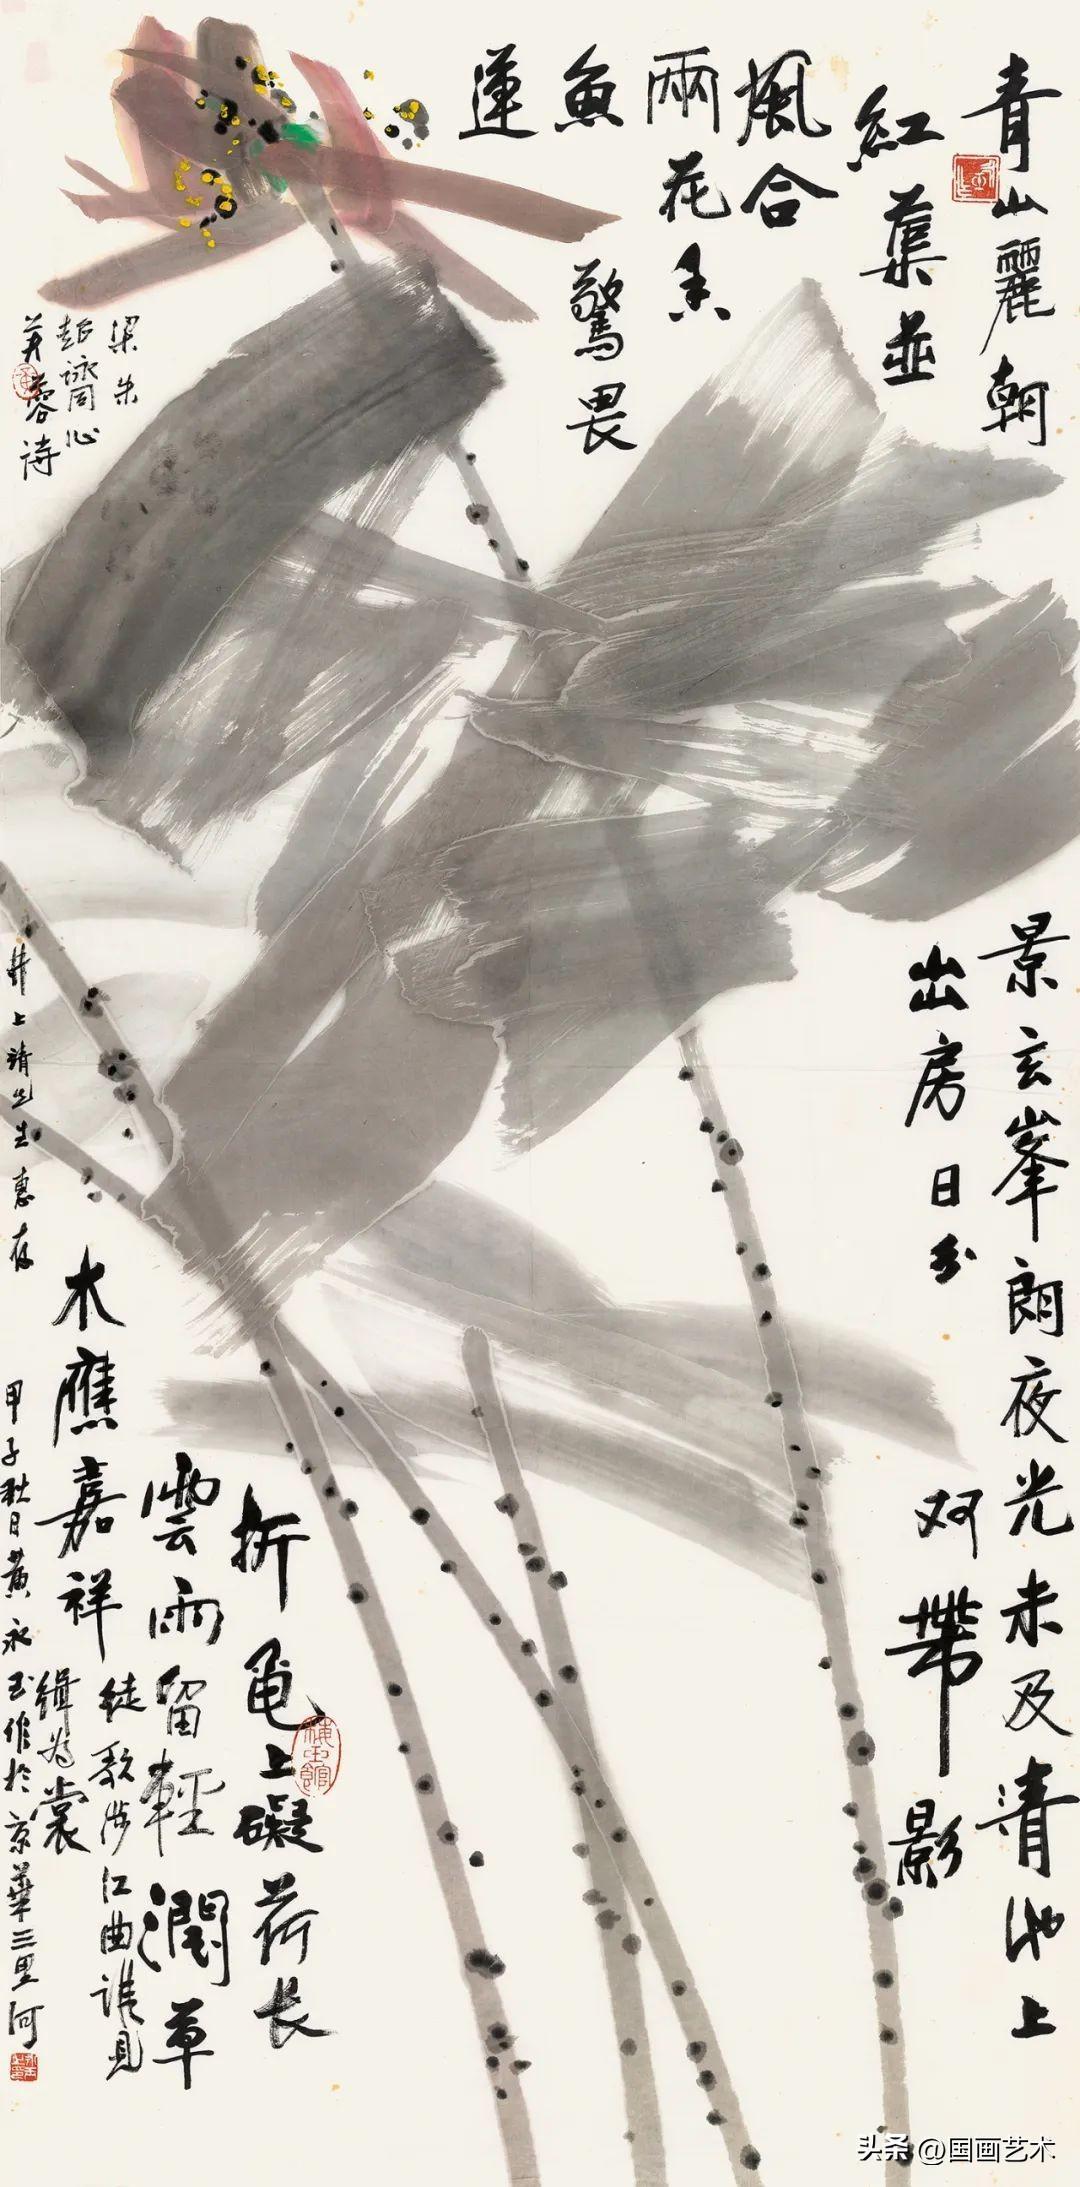 青山麗朝景玄峯朗夜光未及清池上
紅蕖並出房日分双帶影
風合
兩花香
魚驚畏
蓮
折龜上礙荷长
雲雨留輕潤草
木應嘉祥
徒歌涉江曲誰見
緝為裳
梁朱
超詠同心
芙蓉詩
井上靖先生惠存
甲子秋日黄永玉作於京華三里河
头条 @国画艺术